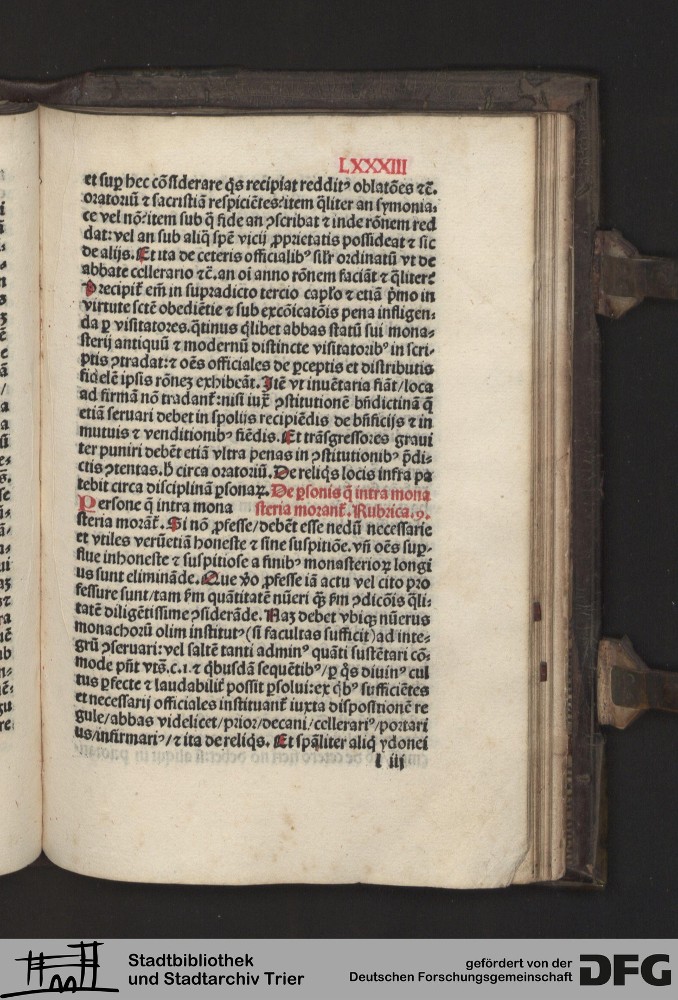 LXXXIII
et sup̱ hec cōſiderare q̄s recipiat redditꝰ oblatōes ⁊c̄.
oratoriū ⁊ sacristiā respiciētes: item q̄liter an symonia⸗
ce vel nō: item sub q̄ fide an ꝯscribat ⁊ inde rōnem red
dat: vel an sub aliq̄ spē vicij ꝓprietatis possideat ⁊ sic
de alijs. Et ita de ceteris officialibꝰ silr̄ ordinatū vt de
abbate cellerario ⁊c̄. an oī anno rōnem faciāt ⁊ q̄literꝫ
Precipit̄ em̄ in supradicto tercio capłо ⁊ etiā p̄mo in
virtute sctē obediētie ⁊ sub excōicatōis pena infligen⸗
da p̱ visitatores. q̄tinus q̄libet abbas statū sui mona⸗
sterij antiquū ⁊ modernū distincte visitatoribꝰ in scri⸗
ptis ꝯtradat: ⁊ oēs officiales de p̱ceptis et distributis
fidelē ipsis rōneꝫ exhibeāt. Itē vt inuētaria fiāt / loca
ad firmā nō tradant̄: nisi iux̄ ꝯstitutionē bn̄dictinā q̄
etiā seruari debet in spolijs recipiēdis de bn̄ficijs ⁊ in
mutuis ⁊ venditionibꝰ fiēdis. Et trāsgressores graui
ter puniri debēt etiā vltra penas in ꝯstitutionibꝰ p̄di⸗
ctis ꝯtentas. h̄ circa oratoriū. De reliq̄s locis infra pa
tebit circa disciplinā p̱sonaꝝ. De p̱sonis q̄ intra mona
Persone q̄ intra mona steria morant̄. Rubrica .9.
steria morāt̄. Si nō ꝓfesse / debēt esse nedū necessarie
et vtiles verūetiā honeste ⁊ sine suspitiōe. vn̄ oēs sup̱⸗
flue inhoneste ⁊ suspitiose a finibꝰ monasterioꝝ longi
us sunt elimināde. Que v̄o ꝓfesse iā actu vel cito pro
fessure sunt / tam km̄ quātitatē nūeri q̄ꝫ km̄ ꝯdicōis q̄li⸗
tatē diligētissime ꝯsiderāde. Naꝫ debet vbiqꝫ nūerus
monachorū olim institutꝰ (si facultas sufficit) ad inte⸗
grū ꝯseruari: vel saltē tanti adminꝰ quāti sustētari cō⸗
mode pn̄t vts̄. c. 1. ⁊ q̄busdā sequētibꝰ / p̱ q̄s diuinꝰ cul
tus p̱fecte ⁊ laudabilit̄ possit p̱solui: ex q̄bꝰ sufficiētes
et necessarij officiales instituant̄ iuxta dispositionē re
gule / abbas videlicet / prior / decani / cellerariꝰ / portari
us / infirmariꝰ / ⁊ ita de reliq̄s. Et sp̄aliter aliq̄ ydonei
l iij
Stadtbibliothek
und Stadtarchiv Trier
gefördert von der
Deutschen Forschungsgemeinschaft
DFG